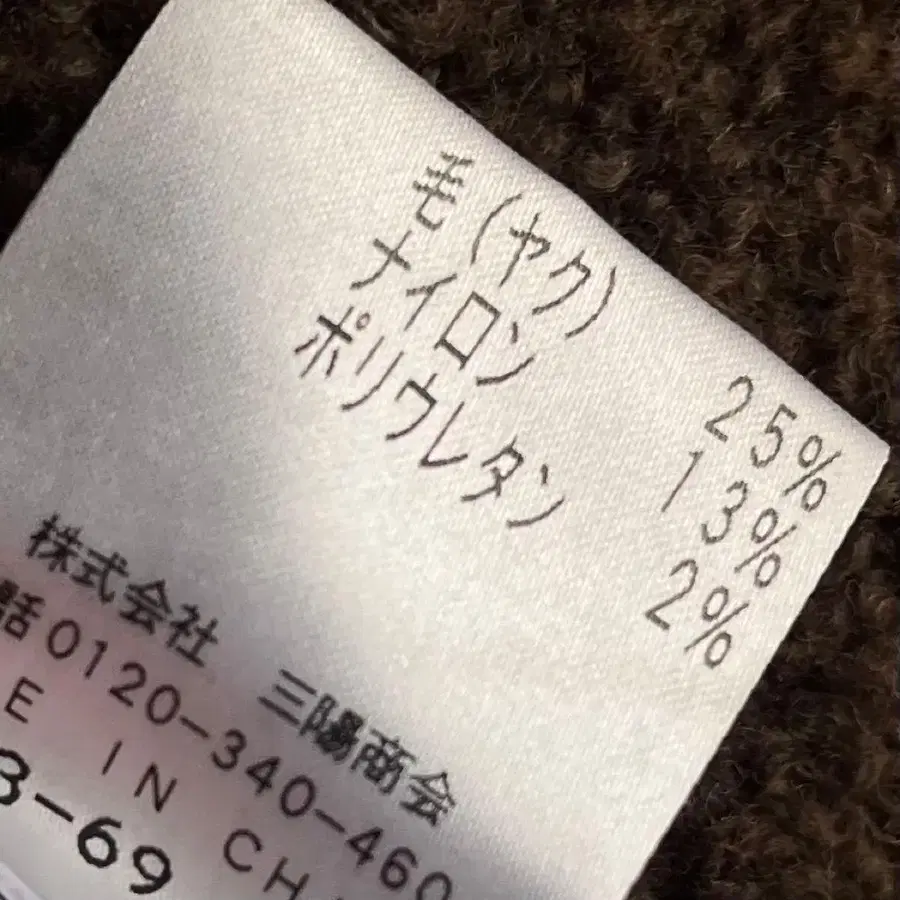 毛(ヤク) 25%
ナイロン 13%
ポリウレタン 2%
株式会社 三陽商会
話0120-340-460
E IN CH
3-69